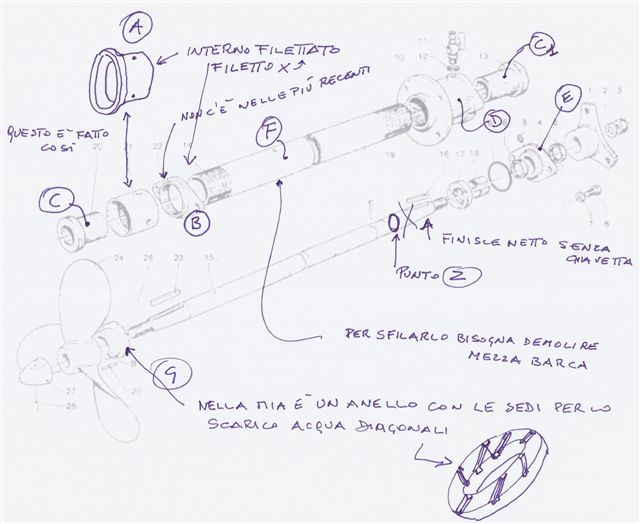 A
INTERNO FILETTATO
FILETTO X
NON C'È NELLE PIÙ RECENTI
QUESTO È FATTO
COSÌ
C
B
F
D
C1
E
10
12
11
13
1
2
3
5
4
6
7
8
20
21
22
14
19
16
17
18
24
26
23
15
27
28
25
A
FINISCE NETTO SENZA
CHIAVETTA
PUNTO Z
PER SFILARLO BISOGNA DEMOLIRE
MEZZA BARCA
G
NELLA MIA È UN ANELLO CON LE SEDI PER LO
SCARICO ACQUA DIAGONALI